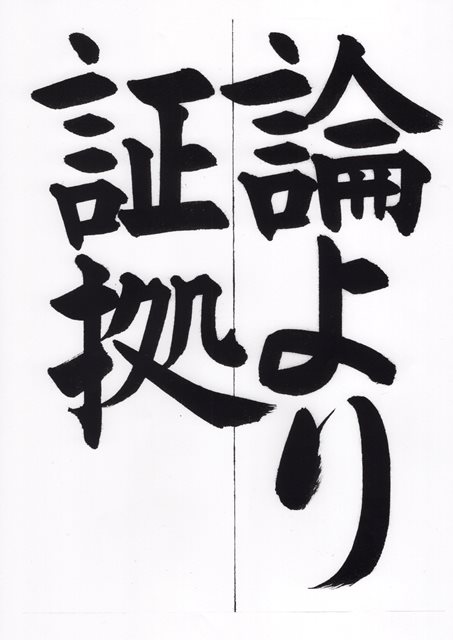 論より
証拠